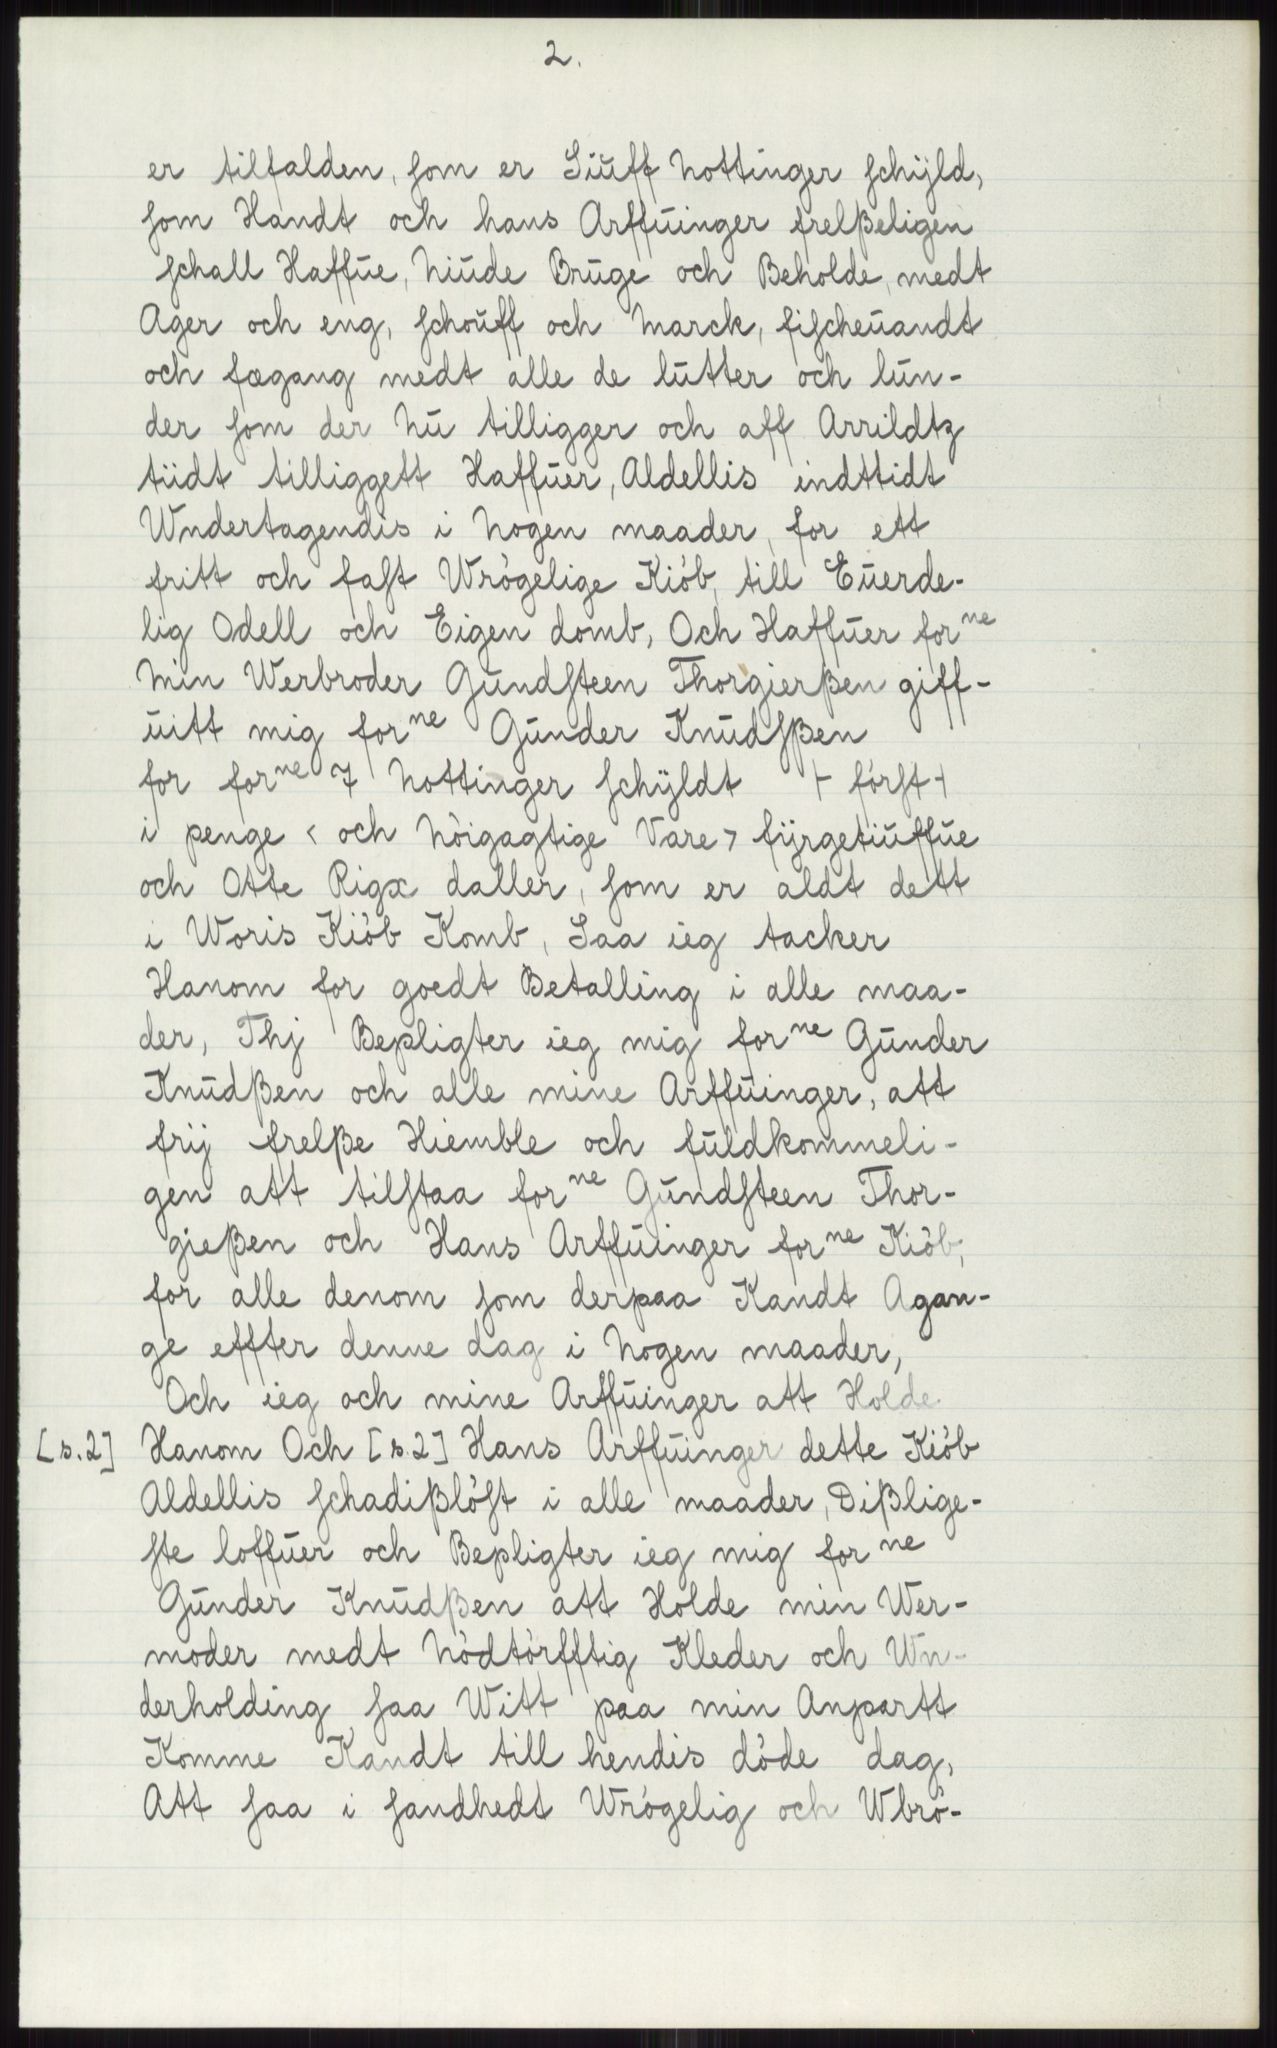 2.
er tilfalden, som er Siuff Nottinger schÿld,
som Handt och hans Arffuinger frelßeligen
schall Haffue, Niude Bruge och Beholde, medt
Ager och eng, schouff och Marck, fischeuandt
och fægang medt alle de lutter och lun-
der som der Nu tilligger och aff Arrildtz
tiidt tilliggett Haffuer, Aldellis indttidt
Wndertagendis i Nogen maader, for ett
fritt och fast Wrögelige Kiöb, till Euerde-
lig Odell och Eigen domb, Och Haffuer forⁿᵉ
Min Werbroder Gundsteen Thorgierßen giff-
uitt mig forⁿᵉ Gunder Knudsßen
for forⁿᵉ 7 Nottinger schÿldt ⊢ först ⊣
i penge < och Nöigagtige Vare > fÿrgetiuffue
och Otte Rigx daller, som er aldt dett
i Woris Kiöb Komb, Saa ieg tacker
Hanom for goedt Betalling i alle maa-
der, Thj Bepligter ieg mig forⁿᵉ Gunder
Knudßen och alle mine Arffuinger, att
frij frelße Hiemble och fuldkommeli-
gen att tilstaa forⁿᵉ Gundsteen Thor-
gießen och Hans Arffuinger forⁿᵉ Kiöb,
for alle denom som derpaa Kandt Agan-
ge effter denne dag i Nogen maader,
Och ieg och mine Arffuinger att Holde
[s.2] Hanom Och [s.2] Hans Arffuinger dette Kiöb
Aldellis schadißlöst i alle maader, Dißlige-
ste loffuer och Bepligter ieg mig forⁿᵉ
Gunder Knudßen att Holde min Wer-
moder medt Nödtörfftig Kleder och Wn-
derholding saa Witt paa min Anpartt
Komme Kandt till hendis döde dag,
Att saa i sandhedt Wrögelig och Wbrö-